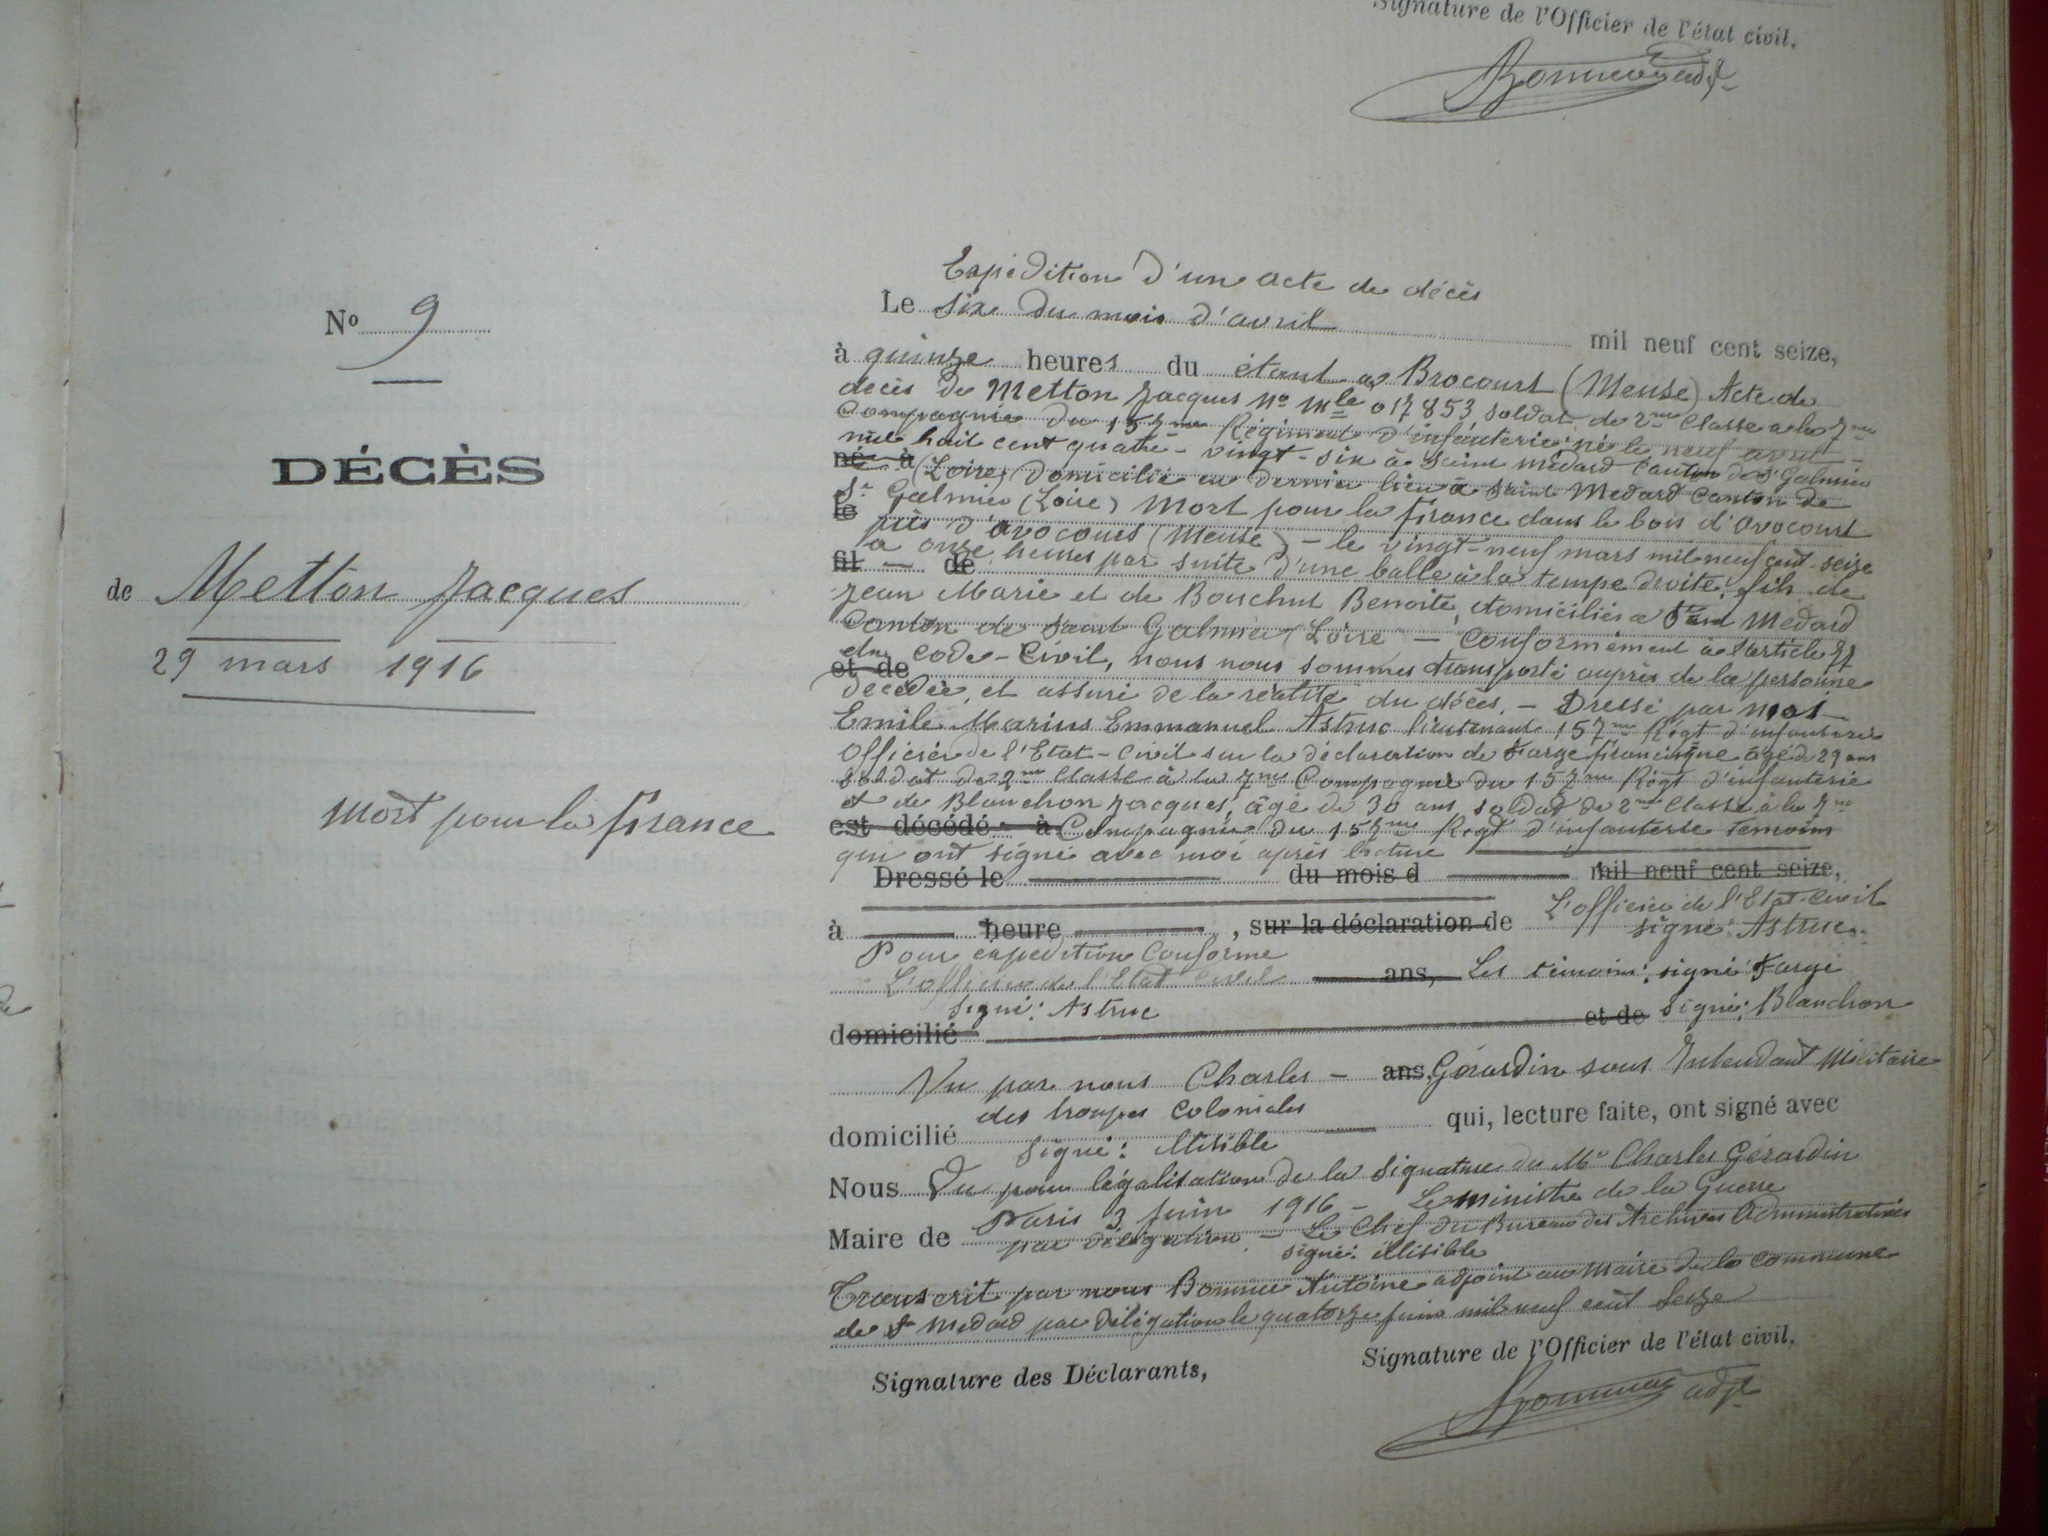 Signature de l'Officier de l'état civil,
N° 9
DÉCÈS
de Metton Jacques
29 mars 1916
Mort pour la France
Expédition d'un acte de décès
Le six du mois d'avril mil neuf cent seize,
à quinze heures du étant à Brocourt (Meuse) Acte de
décès de Metton Jacques N° Mle 017853 soldat de 2me Classe à la 7me
Compagnie du 157me Régiment d'infanterie né le neuf avril
mil huit cent quatre-vingt-six à Saint Médard Canton de St Galmier
né à (Loire) domicilié en dernier lieu à Saint Médard Canton de
St Galmier (Loire) Mort pour la France dans le bois d'Avocourt
le près d'Avocourt (Meuse) - le vingt-neuf mars mil neuf cent seize
à onze heures par suite d'une balle à la tempe droite, fils de
fil de
Jean Marie et de Bouchut Benoite, domiciliés à Saint Médard
Canton de Saint Galmier Loire - Conformément à l'article 77
du Code-Civil, nous nous sommes transporté auprès de la personne
et de
décédée, et assuré de la réalité du décès. - Dressé par moi
Emile Marius Emmanuel Astruc lieutenant 157me Régt d'infanterie
Officier de l'Etat-Civil sur la déclaration de Farge Francisque âgé de 29 ans
soldat de 2me Classe à la 7me Compagnie du 157me Régt d'infanterie
et de Blanchon Jacques, âgé de 30 ans, soldat de 2me Classe à la 7me
est décédé à Compagnie du 157me Régt d'infanterie Témoins
qui ont signé avec moi après lecture
Dressé le du mois d mil neuf cent seize,
à heure , sur la déclaration de L'officier de l'Etat-Civil
signé: Astruc
Pour expédition Conforme
L'officier de l'Etat Civil ans, Les témoins: signé Farge
signé: Astruc
domicilié et de signé: Blanchon
Vu par nous Charles - ans, Gérardin sous Intendant Militaire
des troupes Coloniales
domicilié qui, lecture faite, ont signé avec
Signé: illisible
Nous Vu pour légalisation de la signature du Mr Charles Gérardin
Paris 3 Juin 1916 - Le ministre de la Guerre
Maire de par délégation - Le Chef du Bureau des Archives Administratives
signé: illisible
Transcrit par nous Antoine adjoint au Maire de la commune
de St Médard par délégation le quatorze juin mil neuf cent seize
Signature des Déclarants,
Signature de l'Officier de l'état civil,
adjt